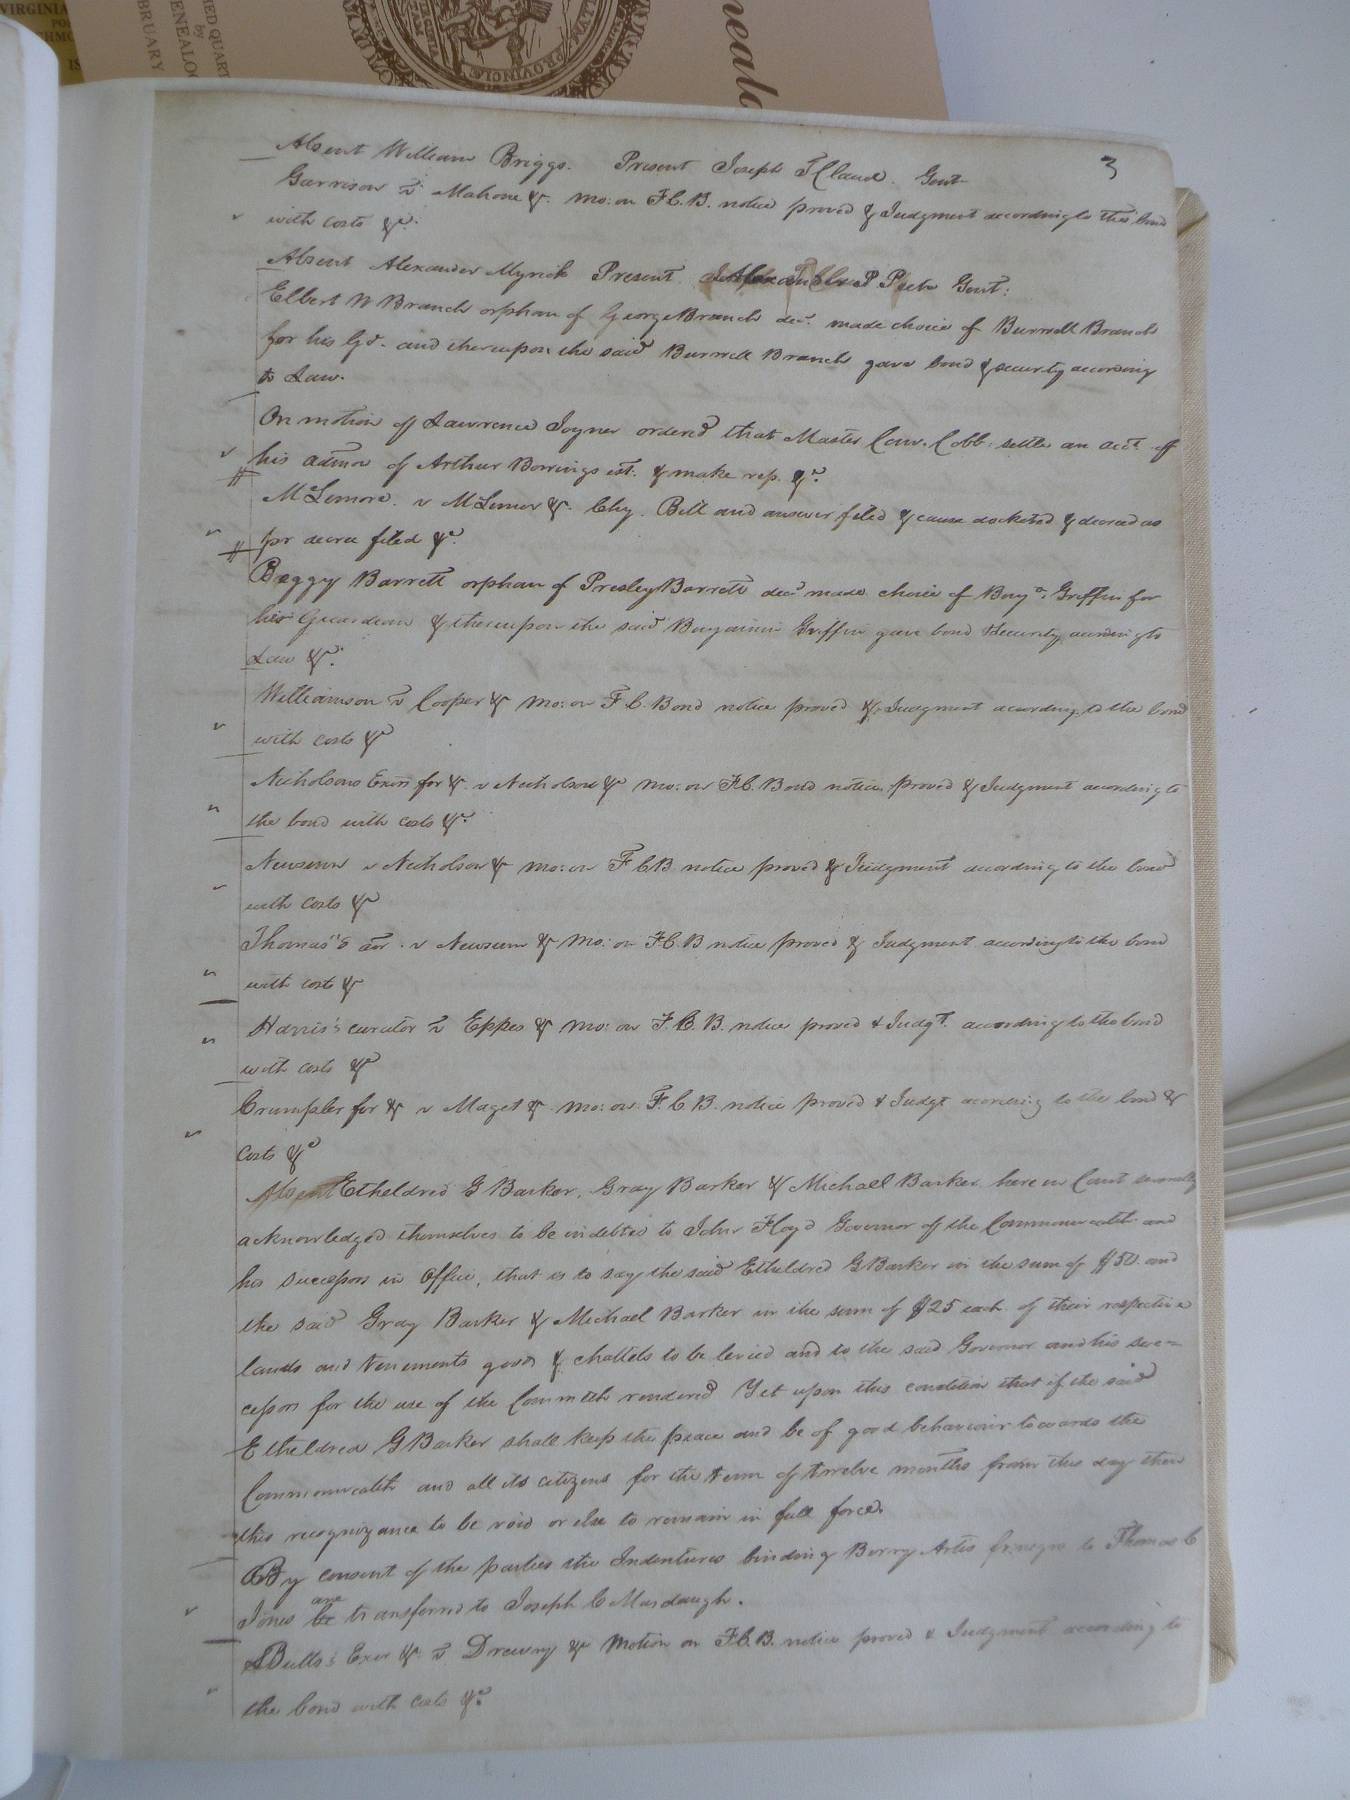 VIRGINIA
GENEALOG
by
BRUARY
PROVINCIÆ
neald
3
Absent William Briggs. Present Joseph T Claud. Gent
Garrison v Mahone &. mo: on F.C.B. notice proved & Judgment according to the bond
with costs &c.
Absent Alexander Myrick Present P Peete Gent:
Elbert W Branch orphan of George Branch decd. made choice of Burwell Branch
for his Gd. and thereupon the said Burwell Branch gave bond & security according
to Law.
On motion of Lawrence Joyner ordered that Master Com. Cobb settle an acct. of
his admon of Arthur est: & make rep. &c.
McLemore. v McLemore &. Chy. Bill and answer filed & cause docketed & decreed as
pr decree filed &c.
Peggy Barrett orphan of Presley Barrett decd. made choice of Benja. Griffin for
her Guardian & thereupon the said Benjamin Griffin gave bond & security according to
Law &c.
Williamson v Cooper & mo: on F.C. Bond notice proved & Judgment according to the bond
with costs &c
Nicholsons Exors for &. v Nicholson &c mo: on F.C. Bond notice, proved & Judgment according to
the bond with costs &c.
Newsom v Nicholson & mo: on F C B notice proved & Judgment according to the bond
with costs &c
Thomas's aor. v Newsom & mo: on F.C.B notice proved & Judgment according to the bond
with costs &
Harris's curator v Eppes & mo: on F.C.B. notice proved & Judgt. according to the bond
with costs &c
Crumpler for & v Maget & mo: on F.C.B. notice proved & Judgt according to the bond &
costs &c
Absent Etheldred G Barker, Gray Barker & Michael Barker here in Court severally
acknowledged themselves to be indebted to John Floyd Governor of the Commonwealth and
his successors in Office, that is to say the said Etheldred G Barker in the sum of $50 and
the said Gray Barker & Michael Barker in the sum of $25 each of their respective
lands and tenements goods & chattels to be levied and to the said Governor and his suc=
cessors for the use of the Commth rendered Yet upon this condition that if the said
Etheldred G Barker shall keep the peace and be of good behaviour towards the
Commonwealth and all its citizens for the term of twelve months from this day then
this recognizance to be void or else to remain in full force.
By consent of the parties the Indentures binding Berry Artis fr. negro to Thomas C
are
Jones be transferred to Joseph C Murdaugh.
Butts's Exor & v Drewry & Motion on F.C.B. notice proved & Judgment according to
the bond with costs &c.